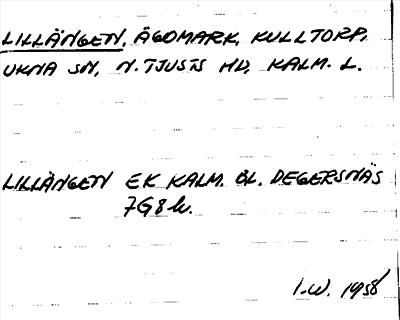 LILLÄNGEN, ÄGOMARK, KULLTORP,
UKNA SN, N. TJUSTS HD, KALM. L.
LILLÄNGEN EK KALM. BL. DEGERSNÄS
7G8h.
I.W. 1958